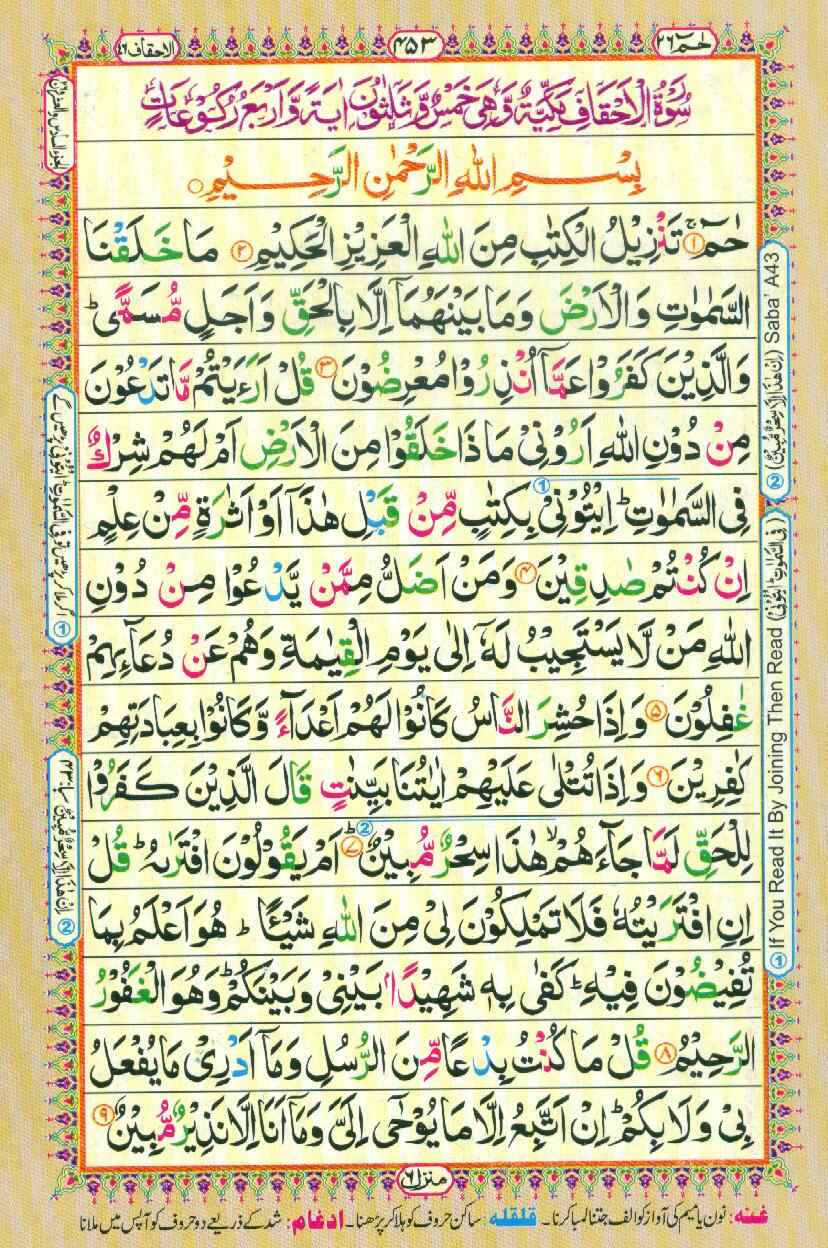 حٰمٓ ٢٦
٤٥٣
الاحقاف ٤٦
سُوْرَةُ الْاَحْقَافِ مَكِّيَّةٌ وَّهِيَ خَمْسٌ وَّثَلٰثُوْنَ اٰيَةً وَّاَرْبَعُ رُكُوْعَاتٍ
بِسْمِ اللّٰهِ الرَّحْمٰنِ الرَّحِيْمِ ○
حٰمٓ ۚ ۝١ تَنْزِيْلُ الْكِتٰبِ مِنَ اللّٰهِ الْعَزِيْزِ الْحَكِيْمِ ۝٢ مَا خَلَقْنَا
السَّمٰوٰتِ وَالْاَرْضَ وَمَا بَيْنَهُمَآ اِلَّا بِالْحَقِّ وَاَجَلٍ مُّسَمًّى ؕ
وَالَّذِيْنَ كَفَرُوْا عَمَّآ اُنْذِرُوْا مُعْرِضُوْنَ ۝٣ قُلْ اَرَءَيْتُمْ مَّا تَدْعُوْنَ
مِنْ دُوْنِ اللّٰهِ اَرُوْنِيْ مَاذَا خَلَقُوْا مِنَ الْاَرْضِ اَمْ لَهُمْ شِرْكٌ
فِي السَّمٰوٰتِ ؕ اِيْتُوْنِيْ ① بِكِتٰبٍ مِّنْ قَبْلِ هٰذَآ اَوْ اَثٰرَةٍ مِّنْ عِلْمٍ
اِنْ كُنْتُمْ صٰدِقِيْنَ ۝٤ وَمَنْ اَضَلُّ مِمَّنْ يَّدْعُوْا مِنْ دُوْنِ
اللّٰهِ مَنْ لَّا يَسْتَجِيْبُ لَهٗٓ اِلٰى يَوْمِ الْقِيٰمَةِ وَهُمْ عَنْ دُعَآئِهِمْ
غٰفِلُوْنَ ۝٥ وَاِذَا حُشِرَ النَّاسُ كَانُوْا لَهُمْ اَعْدَآءً وَّكَانُوْا بِعِبَادَتِهِمْ
كٰفِرِيْنَ ۝٦ وَاِذَا تُتْلٰى عَلَيْهِمْ اٰيٰتُنَا بَيِّنٰتٍ قَالَ الَّذِيْنَ كَفَرُوْا
لِلْحَقِّ لَمَّا جَآءَهُمْ ۙ هٰذَا سِحْرٌ مُّبِيْنٌ ② ؕ ۝٧ اَمْ يَقُوْلُوْنَ افْتَرٰىهُ ؕ قُلْ
اِنِ افْتَرَيْتُهٗ فَلَا تَمْلِكُوْنَ لِيْ مِنَ اللّٰهِ شَيْـًٔا ؕ هُوَ اَعْلَمُ بِمَا
تُفِيْضُوْنَ فِيْهِ ؕ كَفٰى بِهٖ شَهِيْدًۢا بَيْنِيْ وَبَيْنَكُمْ ؕ وَهُوَ الْغَفُوْرُ
الرَّحِيْمُ ۝٨ قُلْ مَا كُنْتُ بِدْعًا مِّنَ الرُّسُلِ وَمَآ اَدْرِيْ مَا يُفْعَلُ
بِيْ وَلَا بِكُمْ ؕ اِنْ اَتَّبِعُ اِلَّا مَا يُوْحٰٓى اِلَيَّ وَمَآ اَنَا اِلَّا نَذِيْرٌ مُّبِيْنٌ ۝٩
منزل ٦
غنه: نون یا میم کی آواز کو الف جتنا لمبا کرنا۔ قلقله: ساکن حروف کو ہلا کر پڑھنا۔ ادغام: شد کے ذریعے دو حروف کو آپس میں ملانا
① If You Read It By Joining Then Read (فِي السَّمٰوٰتِ ائْتُوْنِيْ) ② (اِنْ هٰذَآ اِلَّا سِحْرٌ مُّبِيْنٌ) Saba' A43
الجزء السادس والعشرون
① اگر ملا کر پڑھیں تو فِي السَّمٰوٰتِ ائْتُوْنِيْ پڑھیں گے
② اِنْ هٰذَآ اِلَّا سِحْرٌ مُّبِيْنٌ سبا: ٤٣